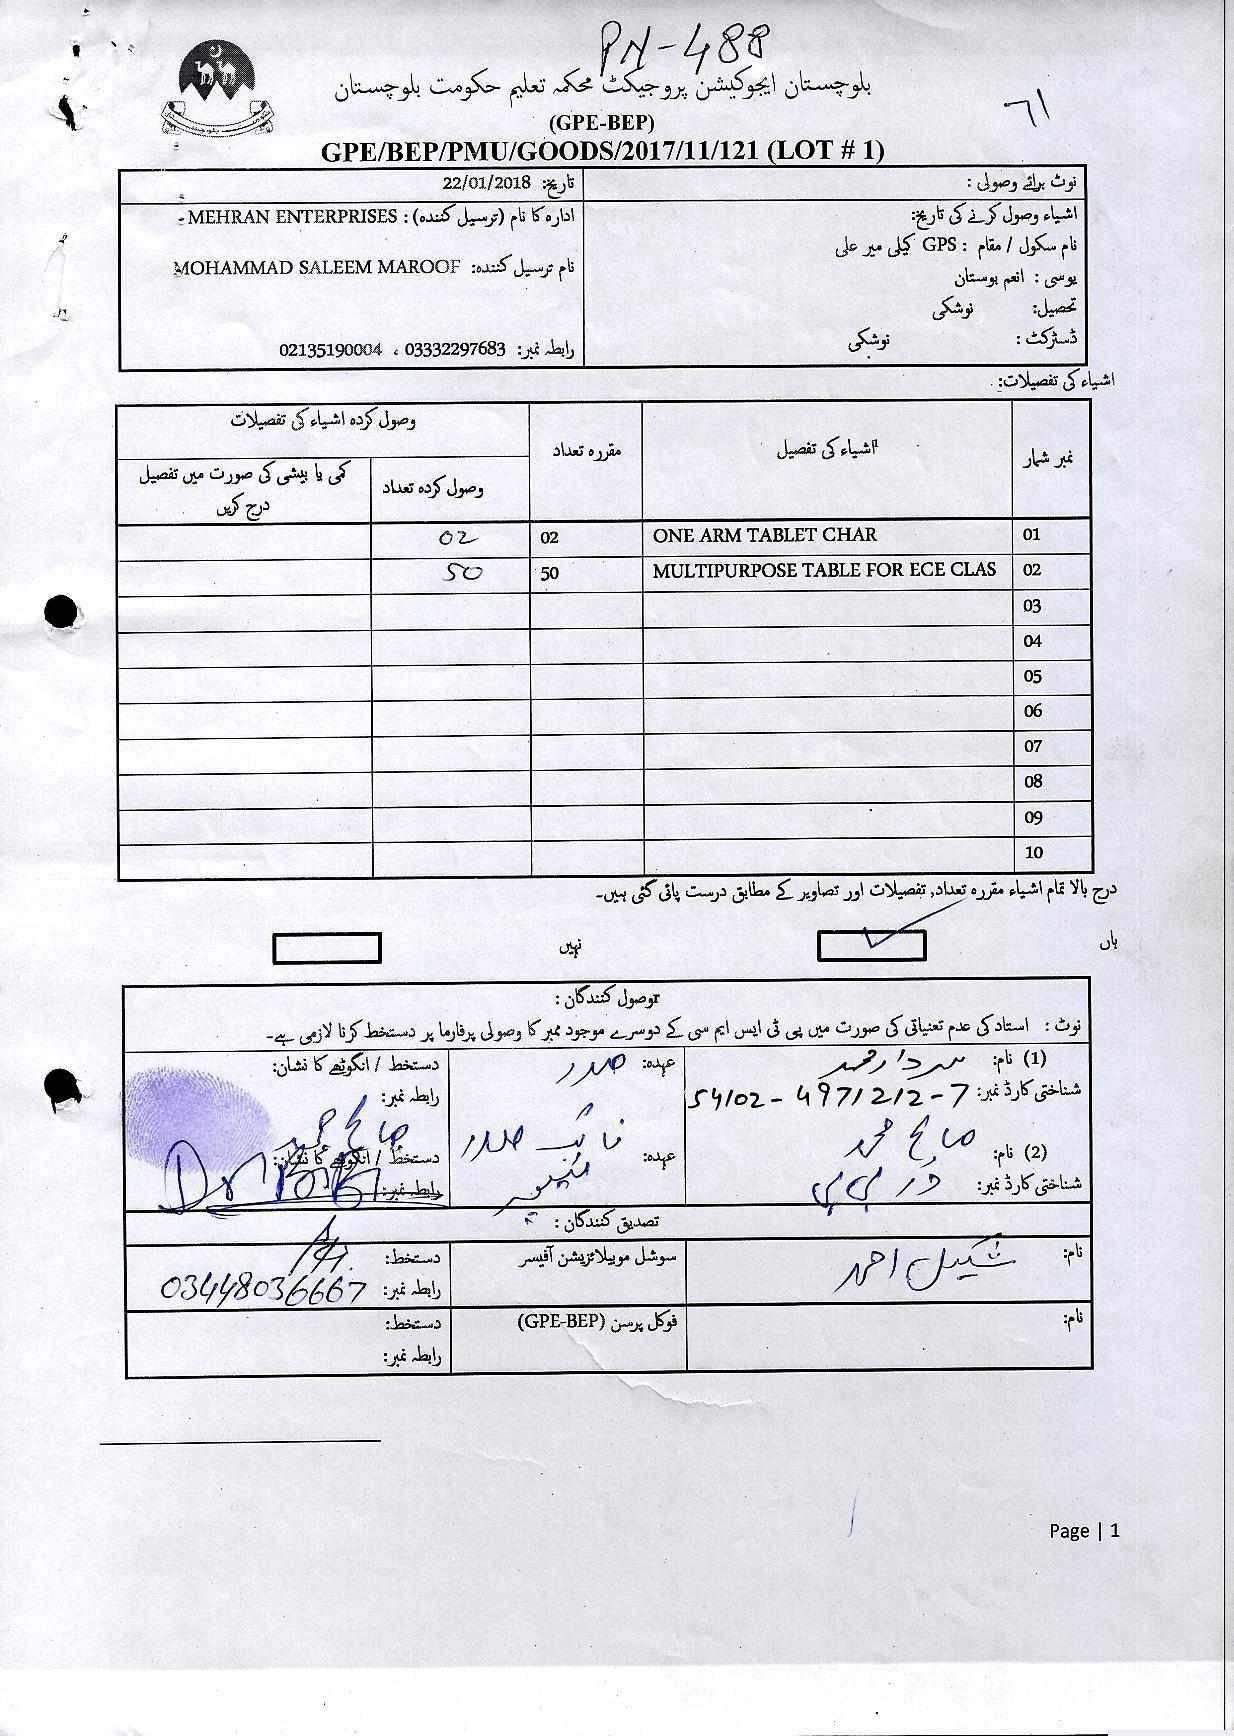 PN-488
بلوچستان ایجوکیشن پروجیکٹ محکمہ تعلیم حکومت بلوچستان
(GPE-BEP)
GPE/BEP/PMU/GOODS/2017/11/121 (LOT # 1)
نوٹ برائے وصولی :
تاریخ: 22/01/2018
اشیاء وصول کرنے کی تاریخ:
نام سکول / مقام : GPS کیلی میر علی
یوسی : انعم بوستان
تحصیل: نوشکی
ڈسٹرکٹ : نوشکی
ادارہ کا نام (ترسیل کنندہ) : MEHRAN ENTERPRISES
نام ترسیل کنندہ: MOHAMMAD SALEEM MAROOF
رابطہ نمبر: 03332297683 ، 02135190004
اشیاء کی تفصیلات:
نمبر شمار
اشیاء کی تفصیل
مقررہ تعداد
وصول کردہ اشیاء کی تفصیلات
وصول کردہ تعداد
کمی یا بیشی کی صورت میں تفصیل درج کریں
01 ONE ARM TABLET CHAR 02 02
02 MULTIPURPOSE TABLE FOR ECE CLAS 50 50
03
04
05
06
07
08
09
10
درج بالا تمام اشیاء مقررہ تعداد, تفصیلات اور تصاویر کے مطابق درست پائی گئی ہیں۔
ہاں ✓ نہیں
وصول کنندگان :
نوٹ : استاد کی عدم تعنیاتی کی صورت میں پی ٹی ایس ایم سی کے دوسرے موجود ممبر کا وصولی پرفارما پر دستخط کرنا لازمی ہے۔
(1) نام: سردار محمد
شناختی کارڈ نمبر: 54102-4971212-7
عہدہ: صدر
دستخط / انگوٹھے کا نشان:
رابطہ نمبر:
(2) نام: صالح محمد
شناختی کارڈ نمبر:
عہدہ: نائب صدر
دستخط / انگوٹھے کا نشان: صالح محمد
رابطہ نمبر:
تصدیق کنندگان :
نام: شکیل احمد
سوشل موبیلائزیشن آفیسر
دستخط:
رابطہ نمبر: 03448036667
نام:
فوکل پرسن (GPE-BEP)
دستخط:
رابطہ نمبر:
Page | 1